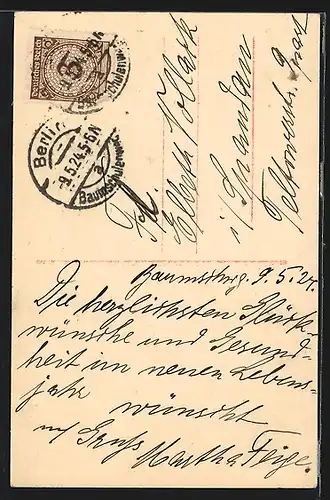 Deutsches Reich
5
Berlin
9.5.24.5-6N
a
Baumschulenweg
Frl.
Elsbeth Vollack
i/ Spandau
Baumschlwg. 9.5.24.
Die herzlichsten Glück-
wünsche und Gesund-
heit im neuen Lebens-
jahr wünscht
m/ Gruß
Martha Feige.